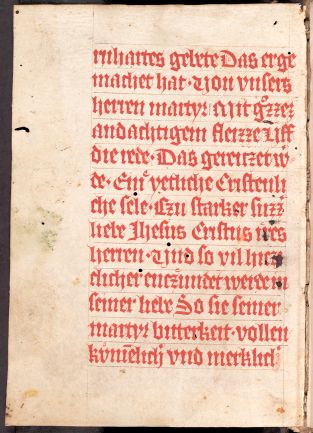 rnhartes gelerte Das er ge
machet hat · Von vnsers
herren marty₂ Mit
andachtigem fleizze Vff
die rede · Das gereitzet w̍
de · Ein yetliche Cristenli
che sele · Czu starker
liebe Jhesus Cristus ires
herren · Vnd so vil
clicher entzundet werden
seiner liebe So sie seiner
marty₂ bitterkeit · vollen
vnd merklich